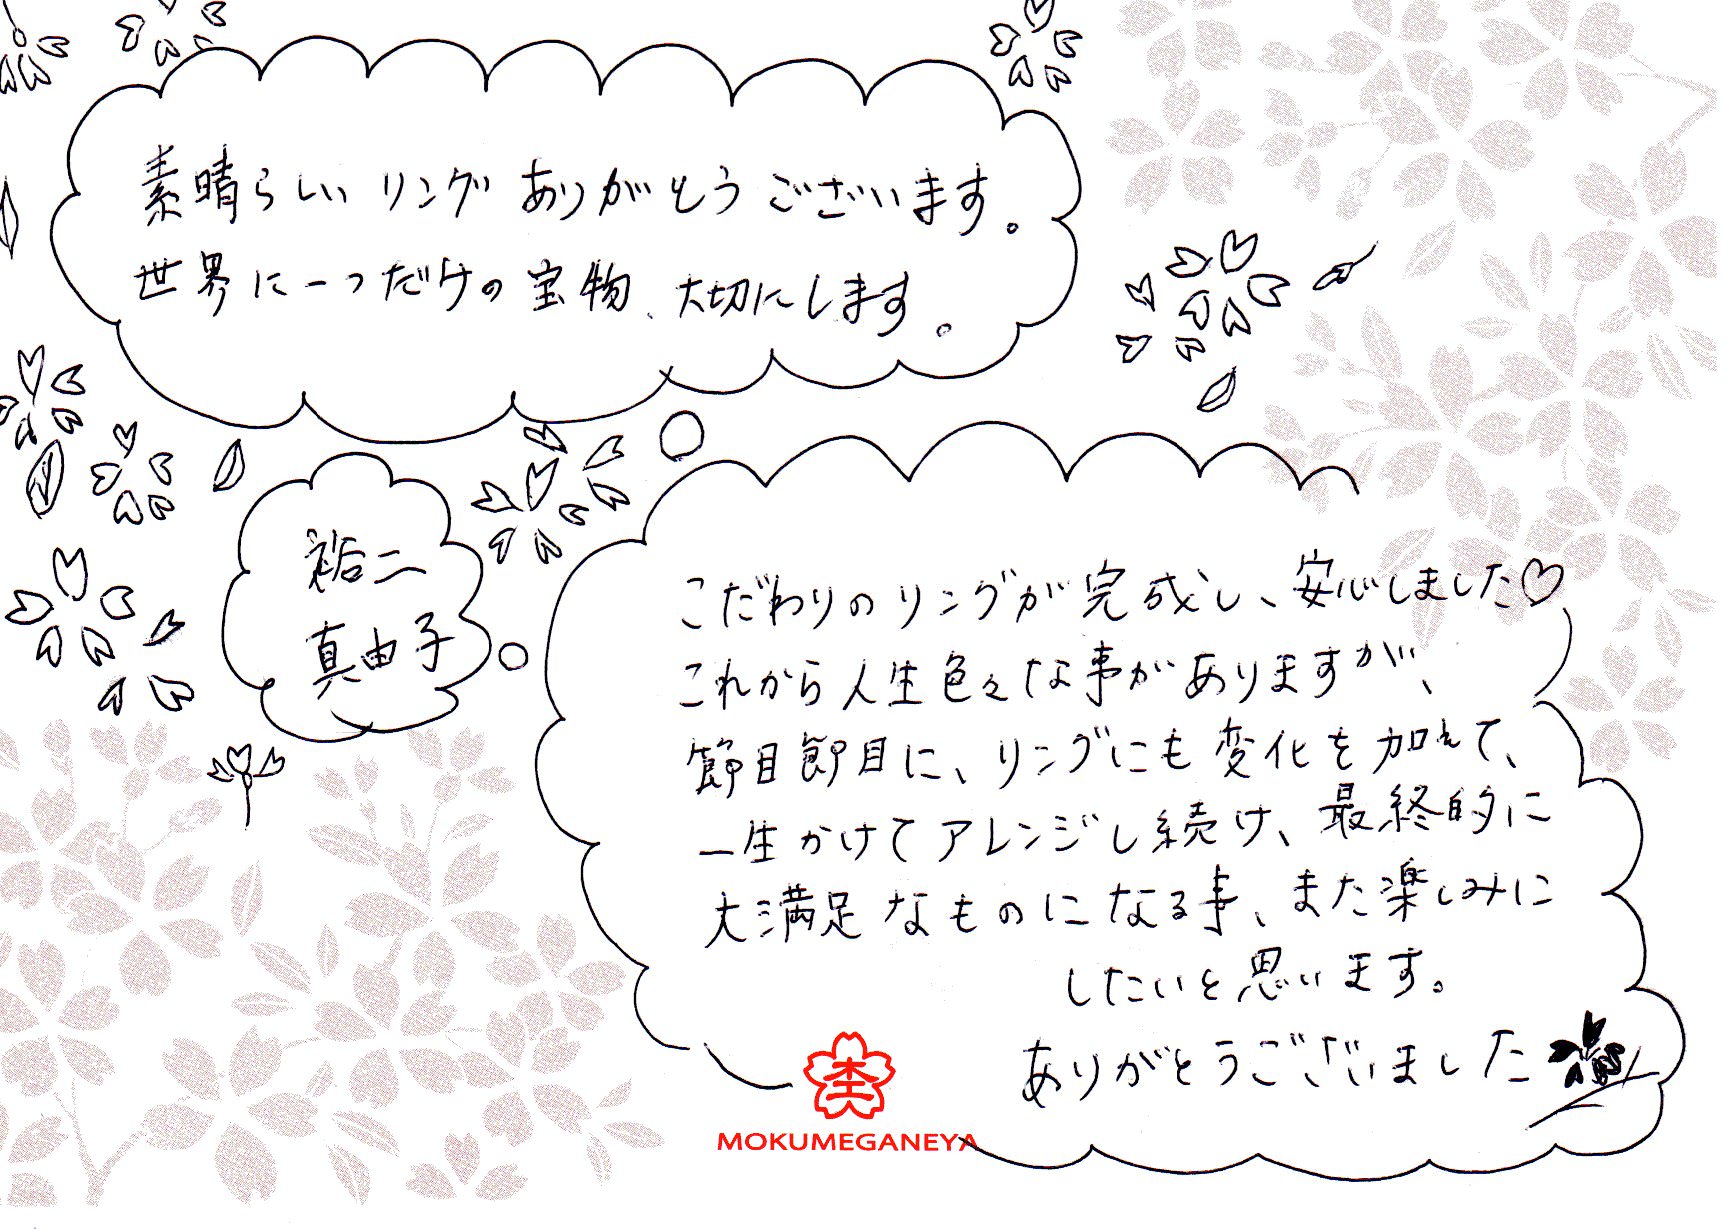 素晴らしいリングありがとうございます。
世界に一つだけの宝物、大切にします。
祐二
真由子
こだわりのリングが完成し、安心しました♡
これから人生色々な事がありますが、
節目節目に、リングにも変化を加えて、
一生かけてアレンジし続け、最終的に
大満足なものになる事、また楽しみに
したいと思います。
ありがとうございました
杢
MOKUMEGANEYA